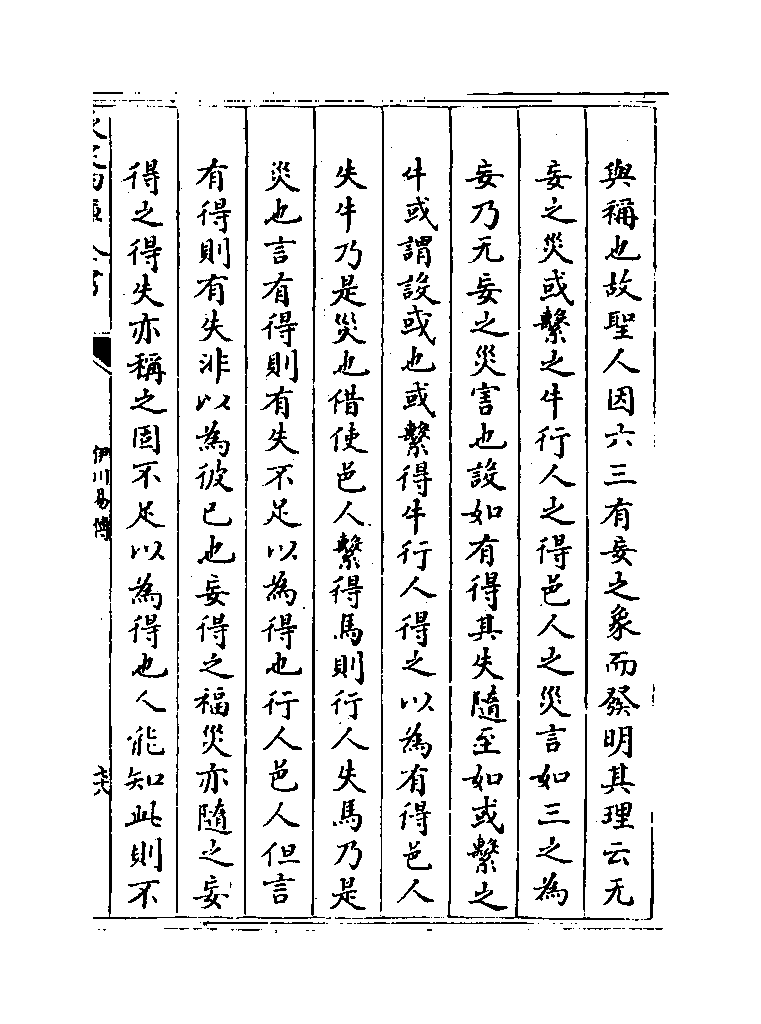 與稱也故聖人因六三有妄之象而發明其理云无
妄之災或繫之牛行人之得邑人之災言如三之為
妄乃无妄之災害也設如有得其失隨至如或繫之
牛或謂設或也或繫得牛行人得之以為有得邑人
失牛乃是災也借使邑人繫得馬則行人失馬乃是
災也言有得則有失不足以為得也行人邑人但言
有得則有失非以為彼已也妄得之福災亦隨之妄
得之得失亦稱之固不足以為得也人能知此則不
伊川易傳